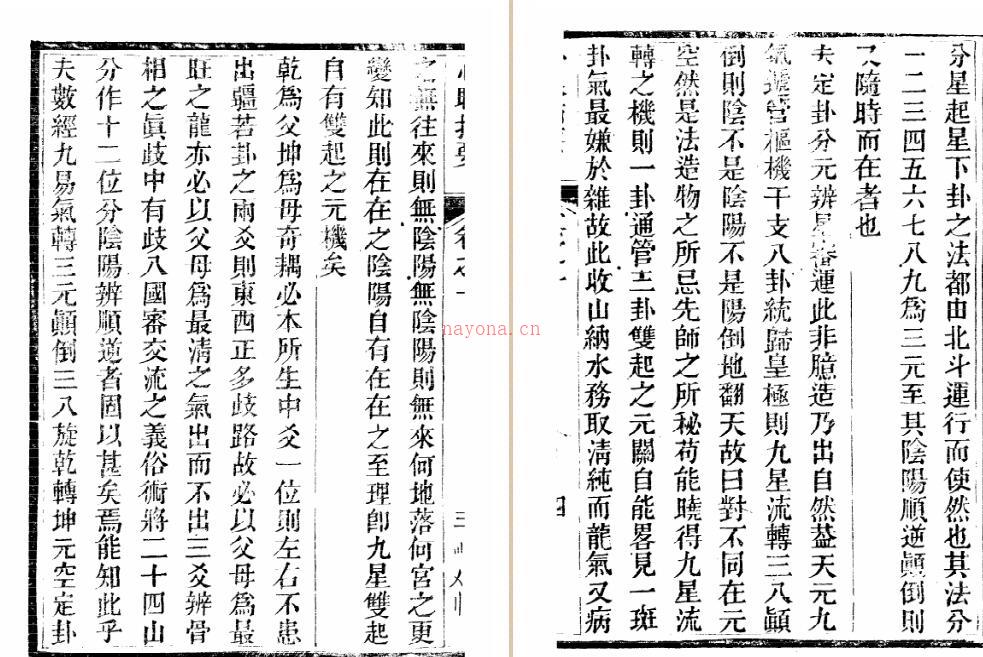 分星起星下卦之法都由北斗運行而使然也其法分
一二三四五六七八九爲三元至其陰陽順逆顚倒則
又隨時而在者也
夫定卦分元辨星審運此非臆造乃出自然葢天元九
氣遞管樞機干支八卦統歸皇極則九星流轉三八顚
倒則陰不是陰陽不是陽倒地翻天故曰對不同在元
空然是法造物之所忌先師之所秘苟能曉得九星流
轉之機則一卦通管三卦雙起之元關自能畧見一斑
卦氣最嫌於雜故此收山納水務取淸純而龍氣又病
四
指要
之無往來則無陰陽無陰陽則無來何地落何宮之更
變知此則在在之陰陽自有在在之至理卽九星雙起
自有雙起之元機矣
乾爲父坤爲母奇耦必本所生中爻一位則左右不患
出疆若卦之兩爻則東西正多歧路故必以父母爲最
旺之龍亦必以父母爲最清之氣出而不出三爻辨骨
相之眞歧中有歧八國審交流之義俗術將二十四山
分作十二位分陰陽辨順逆者固以甚矣焉能知此乎
夫數經九易氣轉三元顚倒三八旋乾轉坤元空定卦
nayona.cn